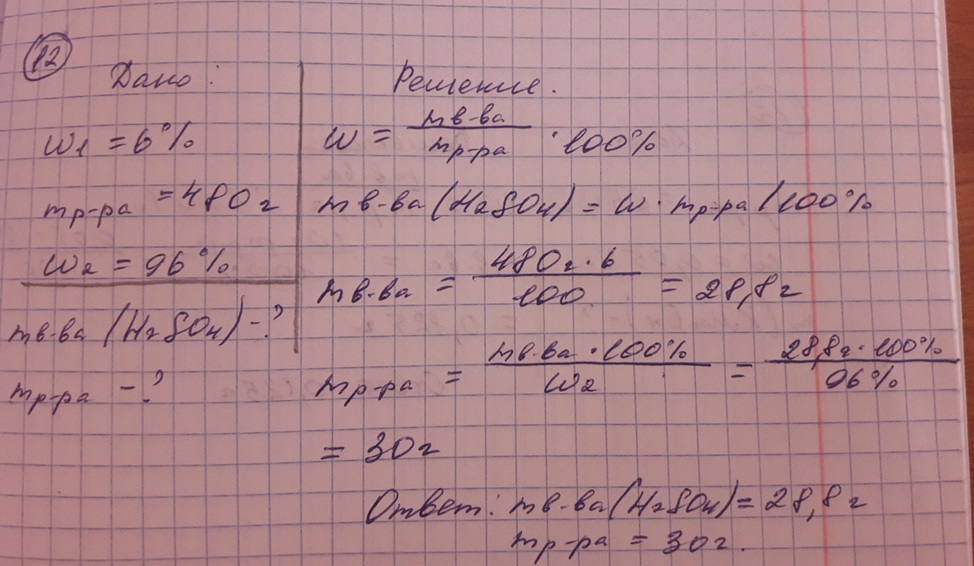 12
Дано:
w1 = 6%
mр-ра = 480г
w2 = 96%
mв-ва (H2SO4) - ?
mр-ра - ?
Решение.
w = mв-ва / mр-ра · 100%
mв-ва (H2SO4) = w · mр-ра / 100%
mв-ва = 480г · 6 / 100 = 28,8г
mр-ра = mв-ва · 100% / w2 = 28,8г · 100% / 96%
= 30г
Ответ: mв-ва (H2SO4) = 28,8г
mр-ра = 30г.